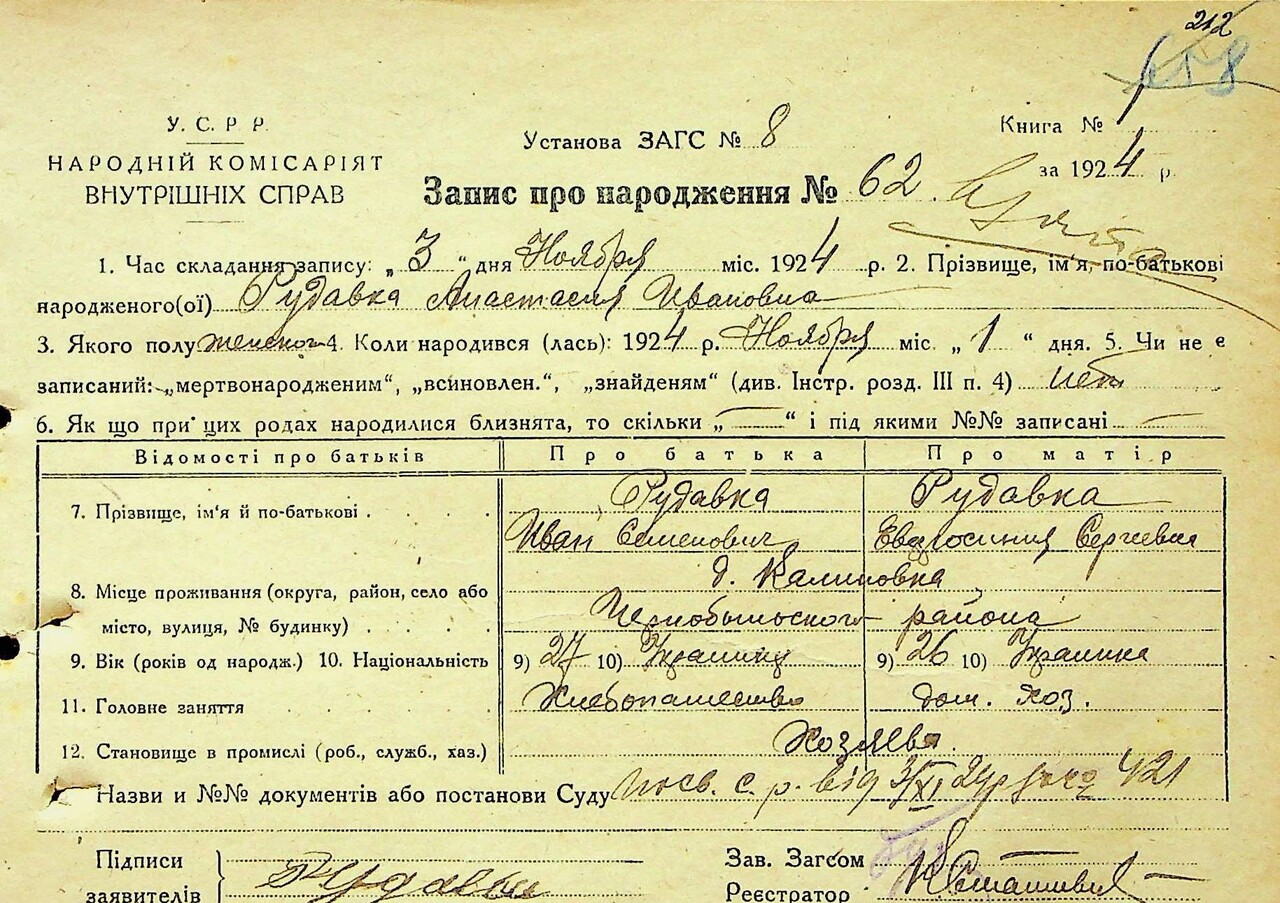 212
У. С. Р. Р.
НАРОДНІЙ КОМІСАРІЯТ
ВНУТРІШНІХ СПРАВ
Установа ЗАГС № 8
Книга № 1
за 1924 р.
Запис про народження № 62.
1. Час складання запису: „3“ дня Ноября міс. 1924 р. 2. Прізвище, ім'я, по-батькові
народженого(ої) Рудавка Анастасия Ивановна
3. Якого полу женского 4. Коли народився (лась): 1924 р. Ноября міс. „1“ дня. 5. Чи не є
записаний: „мертвонародженим“, „всиновлен.“, „знайденям“ (див. Інстр. розд. III п. 4) нет
6. Як що при цих родах народилися близнята, то скільки „—“ і під якими №№ записані —
Відомості про батьків Про батька Про матір
7. Прізвище, ім'я й по-батькові Рудавка Иван Семенович Рудавка Евдросиния Сергеевна
8. Місце проживання (округа, район, село або д. Калиновка
місто, вулиця, № будинку) Чернобыльского района
9. Вік (років од народж.) 10. Національність 9) 27 10) Украинц 9) 26 10) Украинка
11. Головне заняття Хлебопашество дом. хоз.
12. Становище в промислі (роб., служб., хаз.) Хозяева
Назви и №№ документів або постанови Суду посв. с. р. від 3/XI 24р 421
Підписи
заявителів Рудавка
Зав. Загсом
Реєстратор